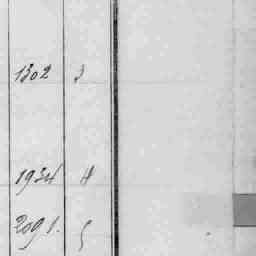 1302 3
1934 4
2091. 5